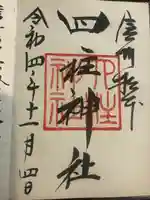 信州松本
四柱神社
四柱神社
令和四年十一月四日